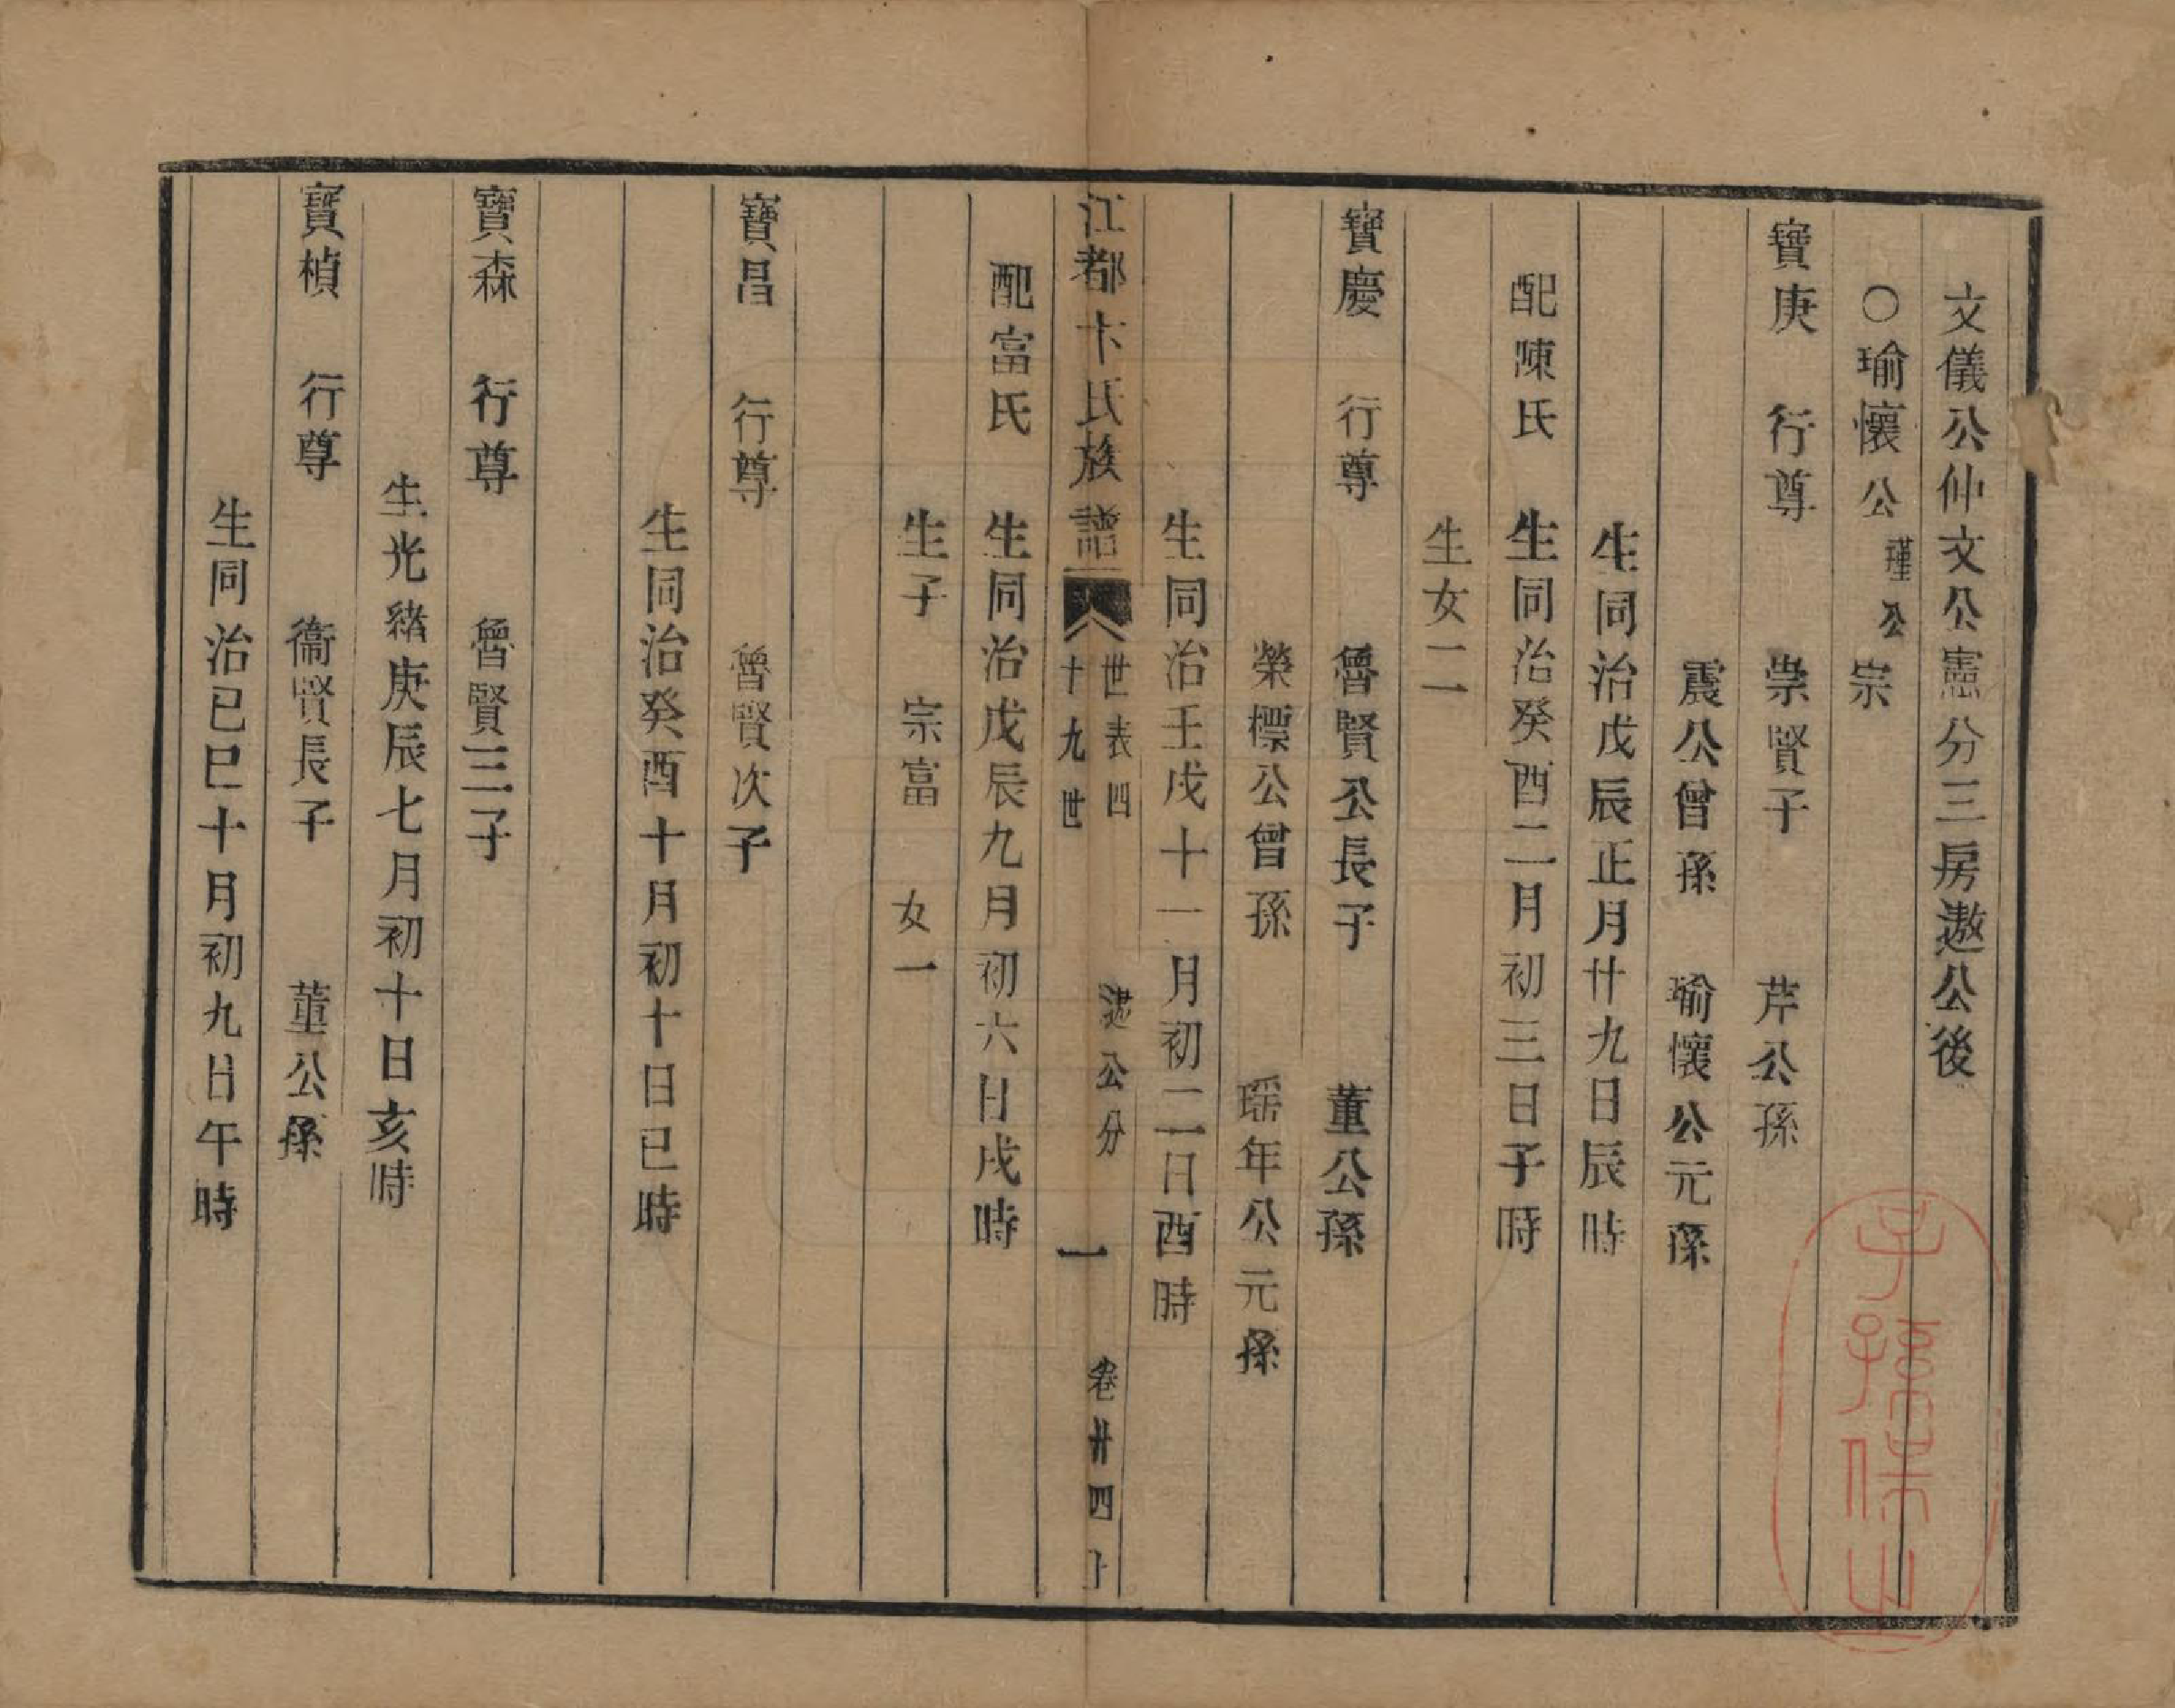 文儀公仲文公憲分三房遨公後
○瑜懷公 瑾公 宗
寶庚 行尊 崇賢子 芹公孫
震公曾孫 瑜懷公元孫
生同治戊辰正月廿九日辰時
配陳氏 生同治癸酉二月初三日子時
生女二
寶慶 行尊 魯賢公長子 董公孫
榮標公曾孫 瑶年公元孫
生同治壬戌十一月初二日酉時
江都卞氏族譜 世表四 十九世 遨公分 一 卷廿四上
配富氏 生同治戊辰九月初六日戌時
生子 宗富 女一
寶昌 行尊 魯賢次子
生同治癸酉十月初十日巳時
寶森 行尊 魯賢三子
生光緒庚辰七月初十日亥時
寶楨 行尊 衞賢長子 董公孫
生同治己巳十月初九日午時
子孫保之